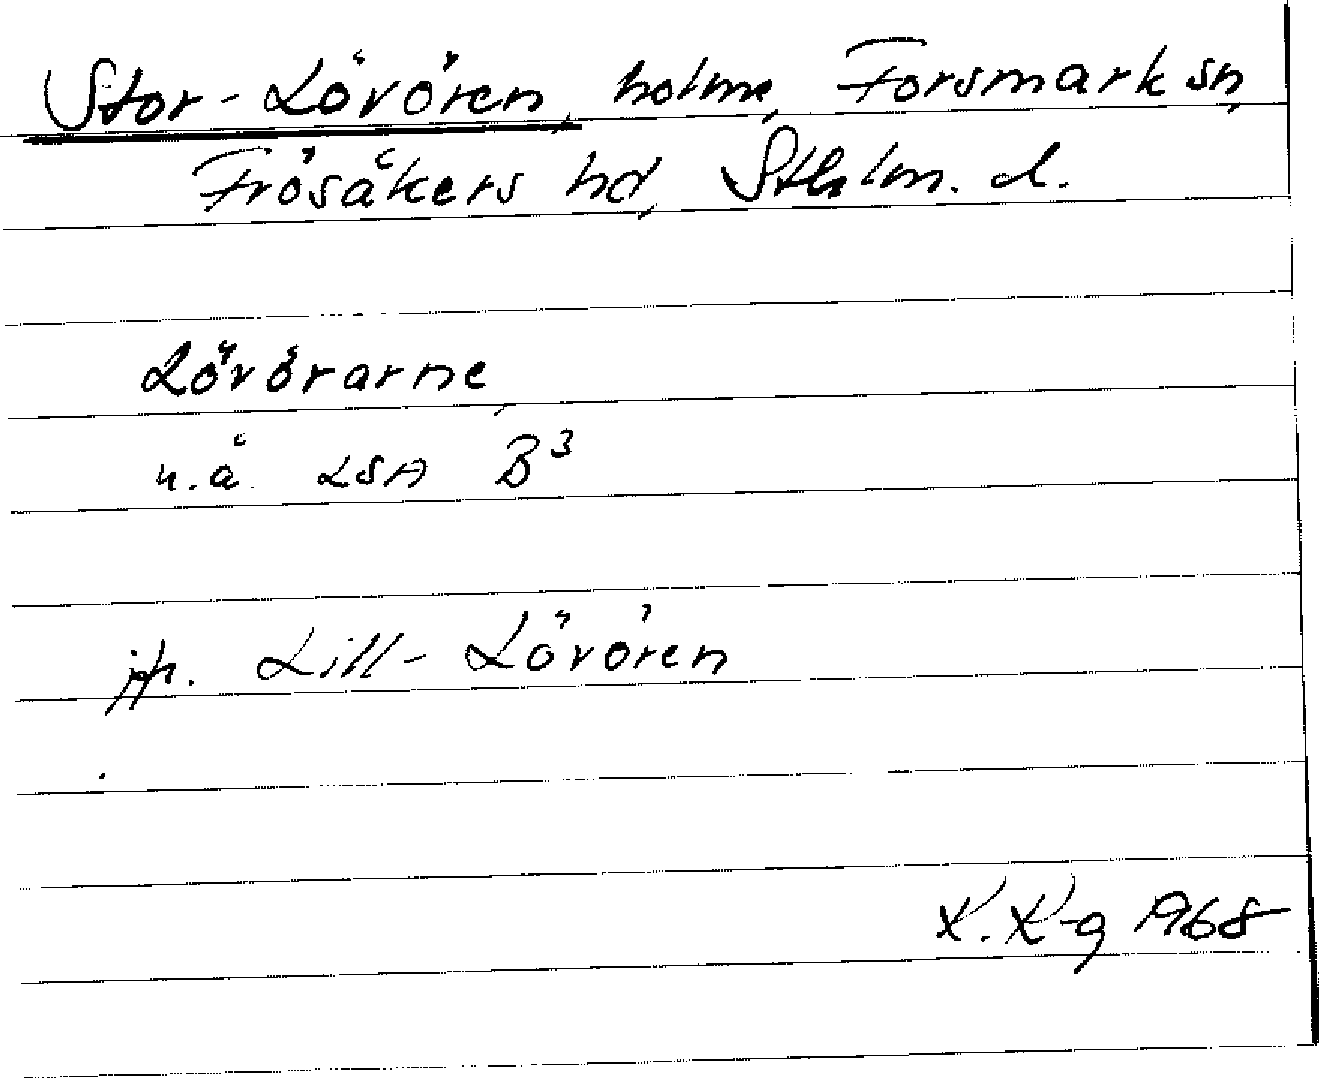 Stor-Lövören, holme, Forsmark sn,
Frösåkers hd, Sthlm. l.
Lövörarne
u.å. LSA B³
jfr. Lill-Lövören
K. K-g 1968